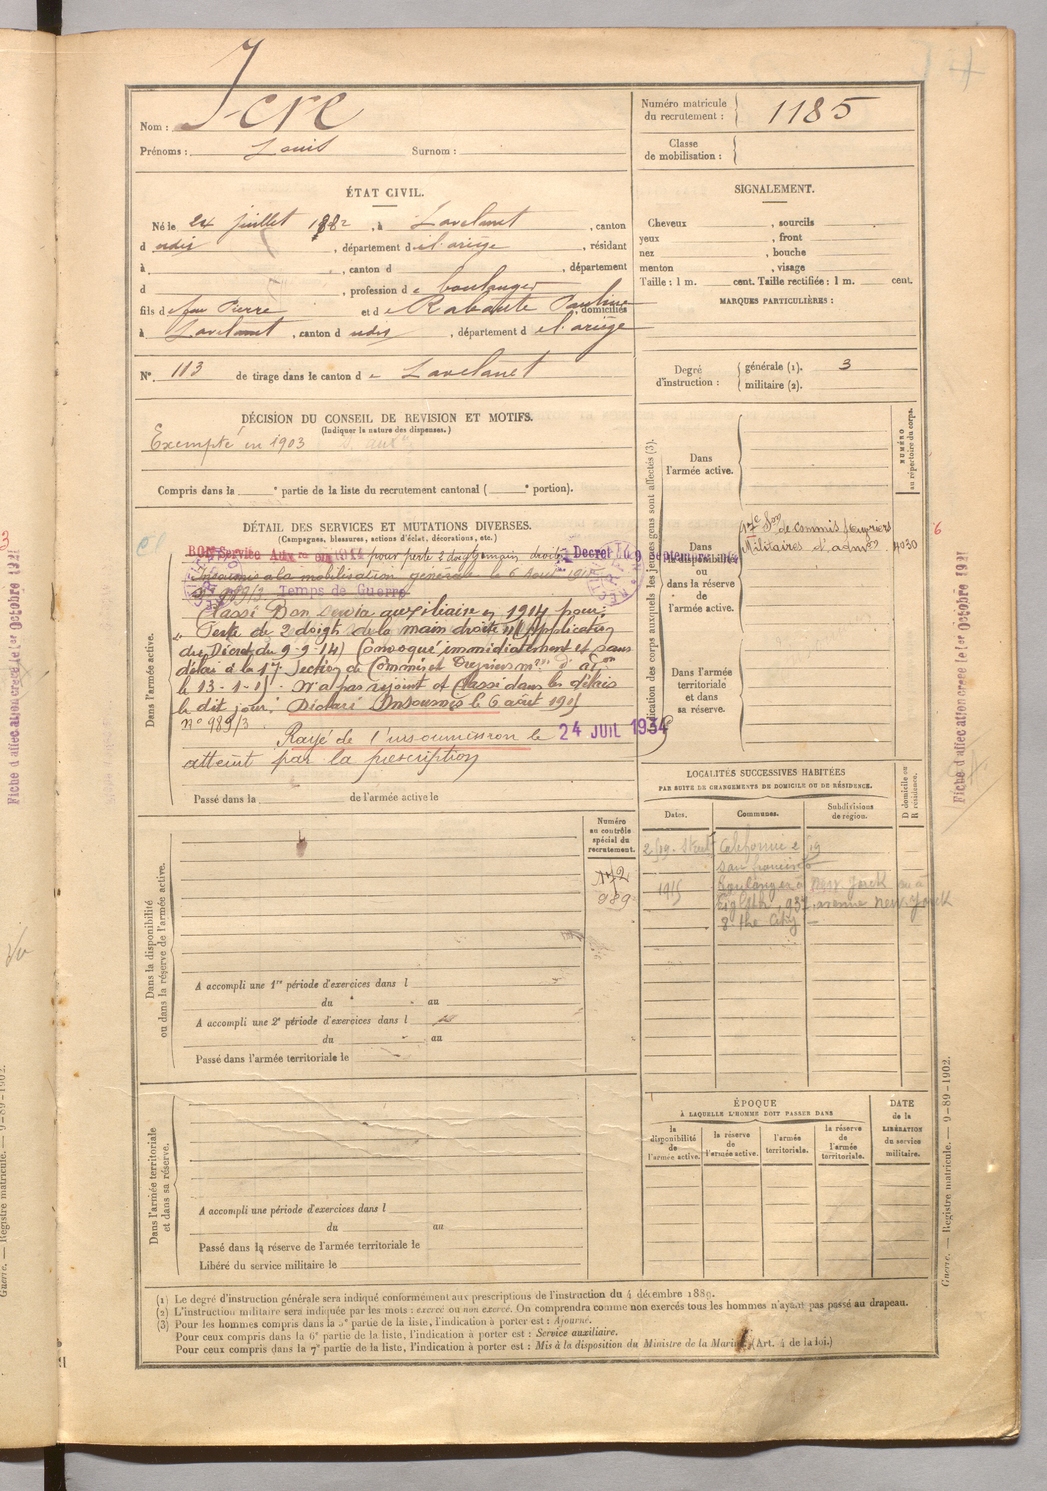 Nom : Jere
Prénoms : Louis Surnom :
Numéro matricule du recrutement : 1185
Classe de mobilisation :
ÉTAT CIVIL.
Né le 24 juillet 1882, à Lavelanet, canton
d udis, département d e l'ariège, résidant
à , canton d , département
d , profession d e boulanger
fils d e feu Pierre et d e Rabaute Pauline, domiciliés
à Lavelanet, canton d udis, département d e l'ariège
N° 113 de tirage dans le canton d e Lavelanet
SIGNALEMENT.
Cheveux , sourcils
yeux , front
nez , bouche
menton , visage
Taille : 1 m. cent. Taille rectifiée : 1 m. cent.
MARQUES PARTICULIÈRES :
Degré d'instruction : générale (1). 3
militaire (2).
DÉCISION DU CONSEIL DE REVISION ET MOTIFS.
(Indiquer la nature des dispenses.)
Exempté en 1903
Compris dans la e partie de la liste du recrutement cantonal ( e portion).
DÉTAIL DES SERVICES ET MUTATIONS DIVERSES.
(Campagnes, blessures, actions d'éclat, décorations, etc.)
BON Service Aux re en 1914 pour perte 2 doigts main droite Decret du 9 Septembre 1914
Insoumis à la mobilisation générale le 6 Août 191
n° 989/3 Temps de Guerre
Classé Bon service auxiliaire en 1914 pour :
" Perte de 2 doigts de la main droite" (Application
du Décret du 9-9-14) Convoqué immédiatement et sans
délai à la 17e Section de Commis et Ouvriers mres d'Aon
le 13-1-15. N'a pas rejoint et Classé dans les délais
le dit jour. Déclaré Insoumis le 6 août 1915
n° 989/3
Rayé de l'insoumission le 24 JUIL 1934
atteint par la prescription
Dans l'armée active.
Passé dans la de l'armée active le
Indication des corps auxquels les jeunes gens sont affectés (3).
NUMÉRO au répertoire du corps.
Dans l'armée active.
17e Son de commis & ouvriers
Militaires d'admon 4030
6
Dans la disponibilité ou dans la réserve de l'armée active.
Dans l'armée territoriale et dans sa réserve.
LOCALITÉS SUCCESSIVES HABITÉES
PAR SUITE DE CHANGEMENTS DE DOMICILE OU DE RÉSIDENCE.
Dates. Communes. Subdivisions de région. D domicile ou R résidence.
2/19. Street Californie 2/19
San francisco
1915 Boulanger à New Yorck
Eighth, 937, avenue New Yorck
8 the City
Dans la disponibilité ou dans la réserve de l'armée active.
Numéro au contrôle spécial du recrutement.
989
A accompli une 1re période d'exercices dans l
du au
A accompli une 2e période d'exercices dans l
du au
Passé dans l'armée territoriale le
Dans l'armée territoriale et dans sa réserve.
A accompli une période d'exercices dans l
du au
Passé dans la réserve de l'armée territoriale le
Libéré du service militaire le
ÉPOQUE
À LAQUELLE L'HOMME DOIT PASSER DANS
la disponibilité de l'armée active. la réserve de l'armée active. l'armée territoriale. la réserve de l'armée territoriale.
DATE de la LIBÉRATION du service militaire.
(1) Le degré d'instruction générale sera indiqué conformément aux prescriptions de l'instruction du 4 décembre 1889.
(2) L'instruction militaire sera indiquée par les mots : exercé ou non exercé. On comprendra comme non exercés tous les hommes n'ayant pas passé au drapeau.
(3) Pour les hommes compris dans la 5e partie de la liste, l'indication à porter est : Ajourné.
Pour ceux compris dans la 6e partie de la liste, l'indication à porter est : Service auxiliaire.
Pour ceux compris dans la 7e partie de la liste, l'indication à porter est : Mis à la disposition du Ministre de la Marine. (Art. 4 de la loi.)
Fiche d'affectation créée le 1er Octobre 1921
Fiche d'affectation créée le 1er Octobre 1921
Guerre. — Registre matricule. — 9-89-1902.
Guerre. — Registre matricule. — 9-89-1902.